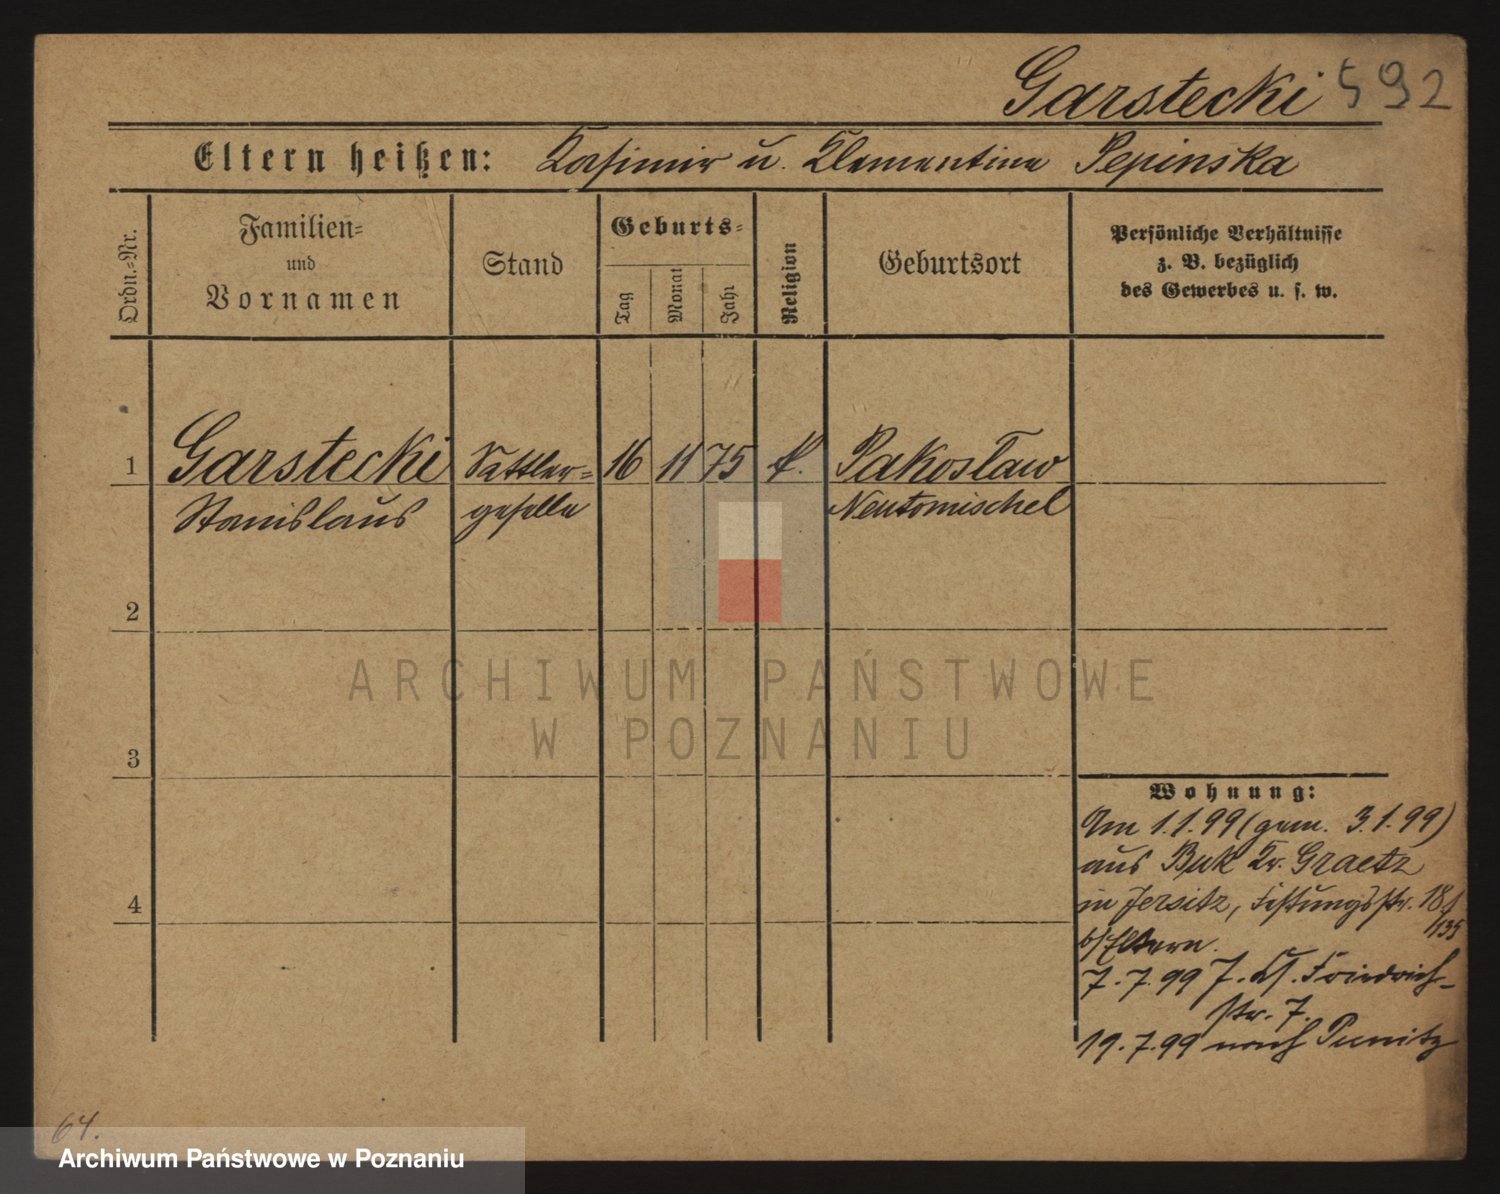 Garstecki 592
Eltern heißen: Kasimir u. Klementine Pepinska
Ordn.-Nr.
Familien-
und
Vornamen
Stand
Geburts-
Tag
Monat
Jahr
Religion
Geburtsort
Persönliche Verhältnisse
z. B. bezüglich
des Gewerbes u. s. w.
1 Garstecki Sattler- 16 11 75 k. Pakosław
Stanislaus geselle Neutomischel
2
3
4
Wohnung:
Am 1.1.99 (gem. 3.1.99)
aus Buk Kr. Graetz
in Jersitz, Festungsstr. 18
b/Eltern.
7.7.99 Friedrich-
str. 7.
19.7.99 nach Punitz
64.
ARCHIWUM PAŃSTWOWE
W POZNANIU
Archiwum Państwowe w Poznaniu